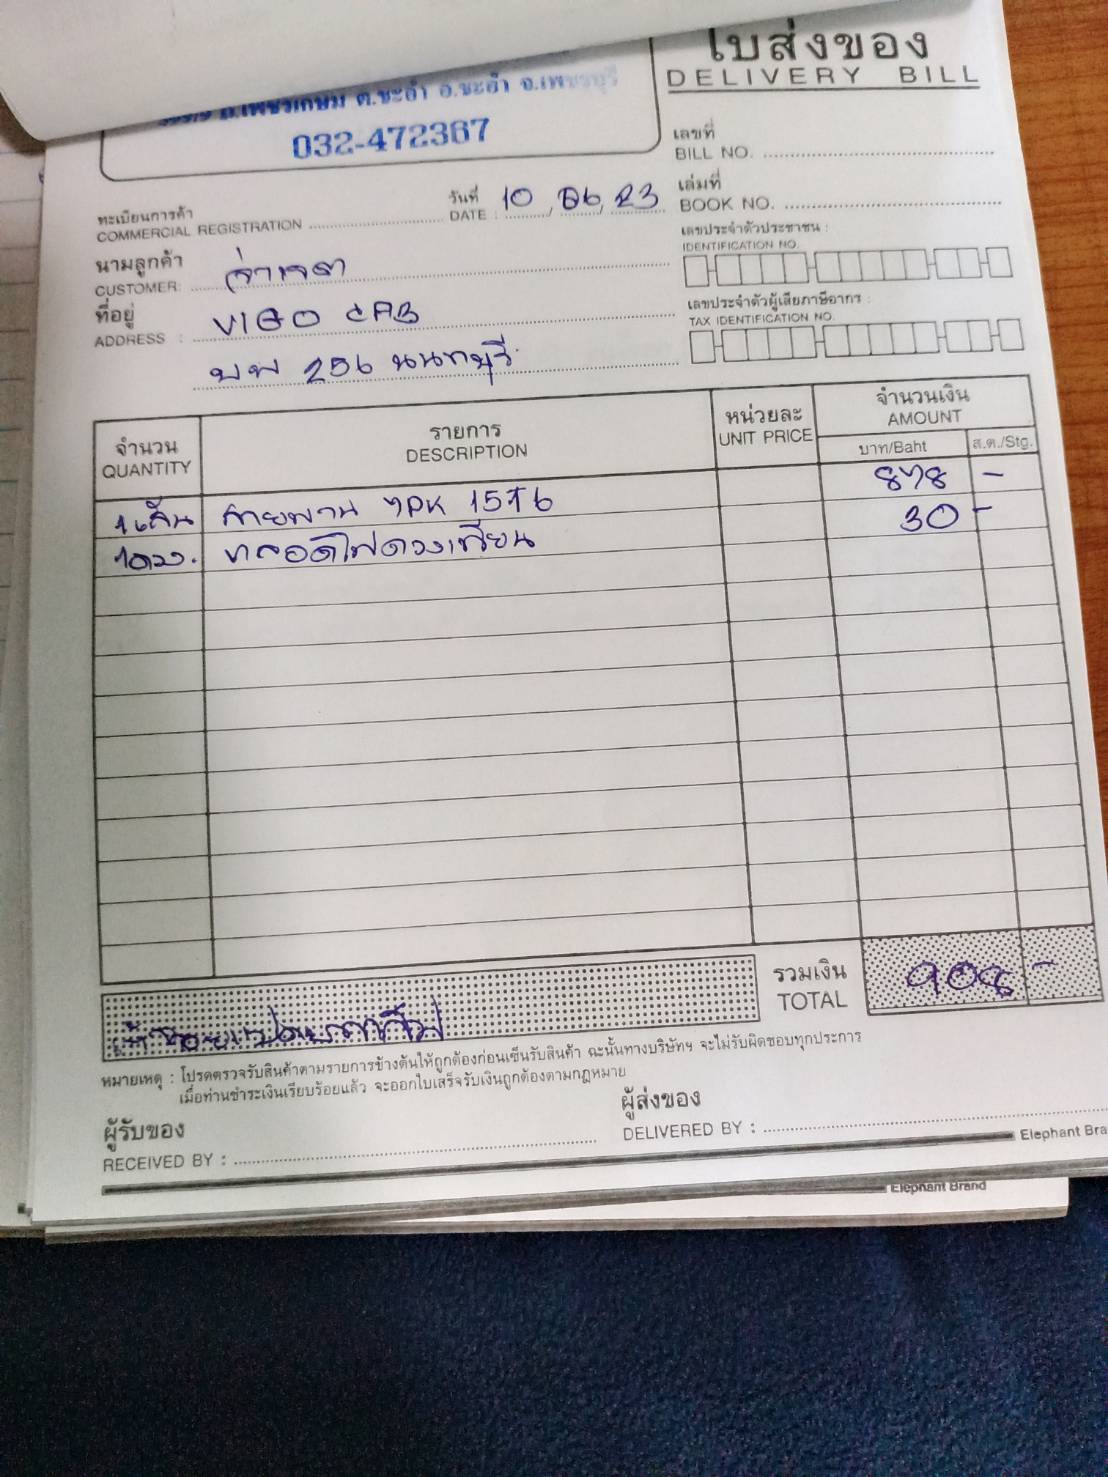 ใบส่งของ
DELIVERY BILL
ถ.เพชรเกษม ต.ชะอำ อ.ชะอำ จ.เพชรบุรี
032-472367
เลขที่
BILL NO.
วันที่
DATE : 10, 06, 23
เล่มที่
BOOK NO.
ทะเบียนการค้า
COMMERCIAL REGISTRATION
เลขประจำตัวประชาชน :
IDENTIFICATION NO.
นามลูกค้า
CUSTOMER:
ที่อยู่
ADDRESS : VIGO CAB
เลขประจำตัวผู้เสียภาษีอากร :
TAX IDENTIFICATION NO.
256 นนทบุรี
จำนวน
QUANTITY
รายการ
DESCRIPTION
หน่วยละ
UNIT PRICE
จำนวนเงิน
AMOUNT
บาท/Baht ส.ต./Stg.
1 เส้น สายพาน 7PK 1516 878 -
1 ดวง. หลอดไฟดวงเทียน 30 -
รวมเงิน
TOTAL
908 -
หมายเหตุ : โปรดตรวจรับสินค้าตามรายการข้างต้นให้ถูกต้องก่อนเซ็นรับสินค้า ฉะนั้นทางบริษัทฯ จะไม่รับผิดชอบทุกประการ
เมื่อท่านชำระเงินเรียบร้อยแล้ว จะออกใบเสร็จรับเงินถูกต้องตามกฎหมาย
ผู้รับของ
RECEIVED BY :
ผู้ส่งของ
DELIVERED BY :
Elephant Bra
Elephant Brand